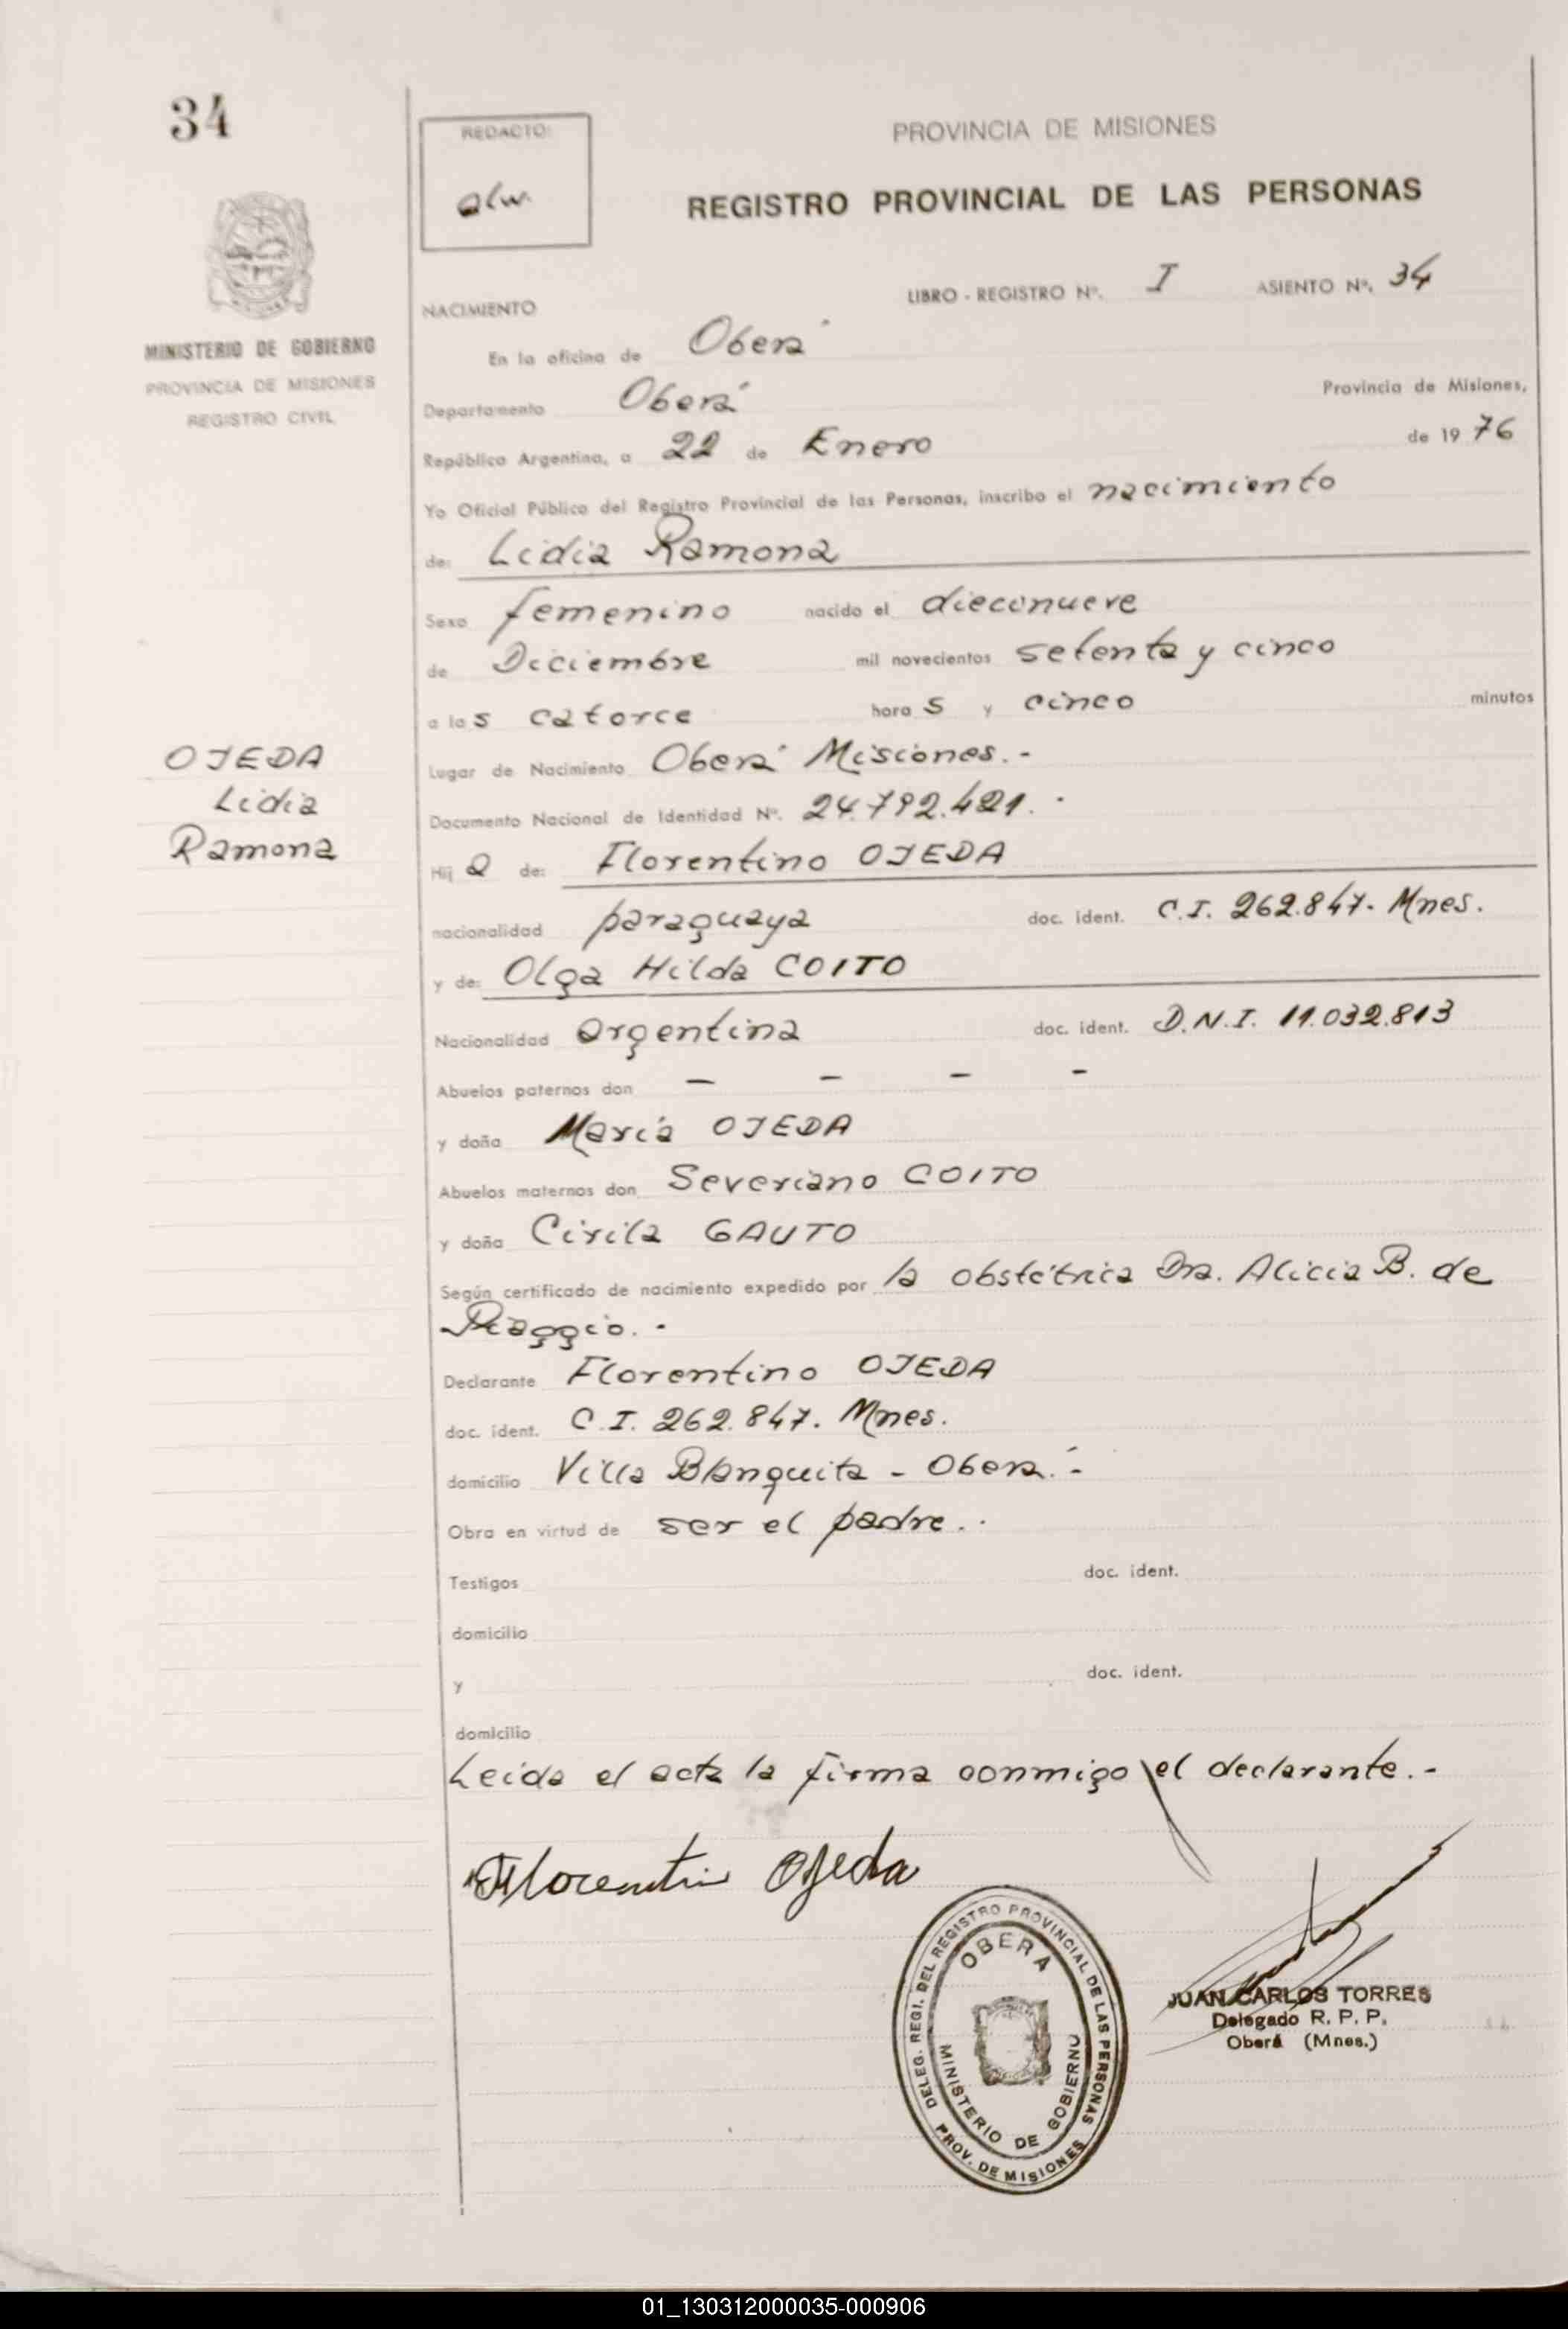 34
REDACTO:
alw.
PROVINCIA DE MISIONES
REGISTRO PROVINCIAL DE LAS PERSONAS
MINISTERIO DE GOBIERNO
PROVINCIA DE MISIONES
REGISTRO CIVIL
LIBRO - REGISTRO Nº. I ASIENTO Nº. 34
NACIMIENTO
En la oficina de Oberá
Departamento Oberá Provincia de Misiones,
República Argentina, a 22 de Enero de 19 76
Yo Oficial Público del Registro Provincial de las Personas, inscribo el nacimiento
de: Lidia Ramona
Sexo femenino nacido el diecinueve
de Diciembre mil novecientos setenta y cinco
a las catorce horas y cinco minutos
OJEDA
Lidia
Ramona
Lugar de Nacimiento Oberá Misiones.-
Documento Nacional de Identidad Nº. 24.792.421.-
Hija de: Florentino OJEDA
nacionalidad paraguaya doc. ident. C.I. 262.847. Mnes.
y de: Olga Hilda COITO
Nacionalidad argentina doc. ident. D.N.I. 11.032.813
Abuelos paternos don - - - -
y doña María OJEDA
Abuelos maternos don Severiano COITO
y doña Cirila GAUTO
Según certificado de nacimiento expedido por la obstétrica Dra. Alicia B. de
Piaggio.-
Declarante Florentino OJEDA
doc. ident. C.I. 262.847. Mnes.
domicilio Villa Blanquita - Oberá.-
Obra en virtud de ser el padre.-
Testigos doc. ident.
domicilio
y doc. ident.
domicilio
Leida el acta la firma conmigo el declarante.-
Florentin Ojeda
DELEG. REGI. DEL REGISTRO PROVINCIAL DE LAS PERSONAS
OBERA
MINISTERIO DE GOBIERNO
PROV. DE MISIONES
JUAN CARLOS TORRES
Delegado R. P. P.
Oberá (Mnes.)
01_130312000035-000906